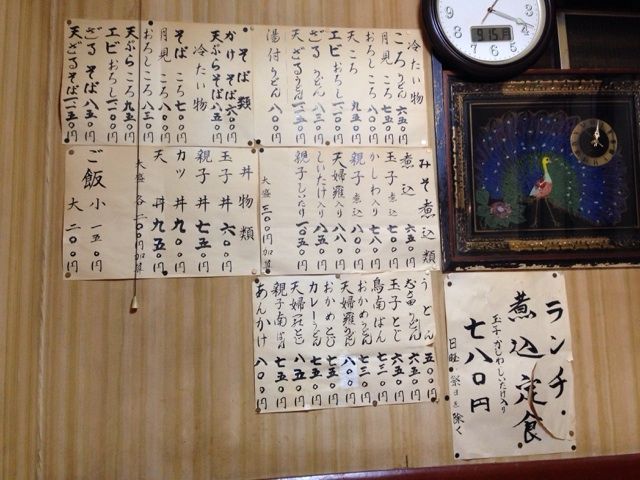 冷たい物
ころ うどん 六五〇円
月見ころ 七五〇円
おろしころ 八〇〇円
天ころ 九五〇円
エビおろし 一一〇〇円
ざる うどん 八五〇円
天ざるうどん 一一五〇円
湯付うどん 八〇〇円
そば類
かけ そば 六〇〇円
天ぷらそば 八五〇円
冷たい物
そば ころ 七〇〇円
月見ころ 八〇〇円
おろしころ 八五〇円
天ぷらころ 九五〇円
エビおろし 一一〇〇円
ざる そば 八五〇円
天ざるそば 一一五〇円
みそ煮込類
煮込 六五〇円
玉子 煮込 七〇〇円
かしわ入り 七八〇円
親子 煮込 八〇〇円
天婦羅入り 八八〇円
しいたけ入り 八五〇円
親子しいたけ 一〇五〇円
大盛 三〇〇円加算
丼物類
玉子 丼 六〇〇円
親子 丼 七五〇円
カツ 丼 九〇〇円
天 丼 九五〇円
大盛 各二〇〇円加算
ご飯 小 一五〇円
大 二〇〇円
うどん 五〇〇円
玉子とじ 六五〇円
鳥南ばん 七三〇円
おかめうどん 七三〇円
天婦羅うどん 八〇〇円
おかめとじ 七五〇円
カレーうどん 七五〇円
天婦羅とじ 八五〇円
親子南ばん 七五〇円
あんかけ 八〇〇円
ランチ・
煮込定食
玉子かしわしいたけ入り
七八〇円
日曜 祭日を除く
9:15